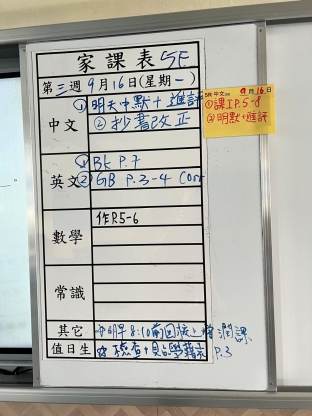 家課表 5E
第三週 9月16日(星期一)
中文
① 明天中默+進評
② 抄書改正
英文
① Bk P.7
② GB P.3-4 Corr
數學
作P.5-6
常識
其它
明早8:10前回校上
課
值日生
檢查+
P.3
5E 中文
9月16日
①課1P.5-8
②明默+進評